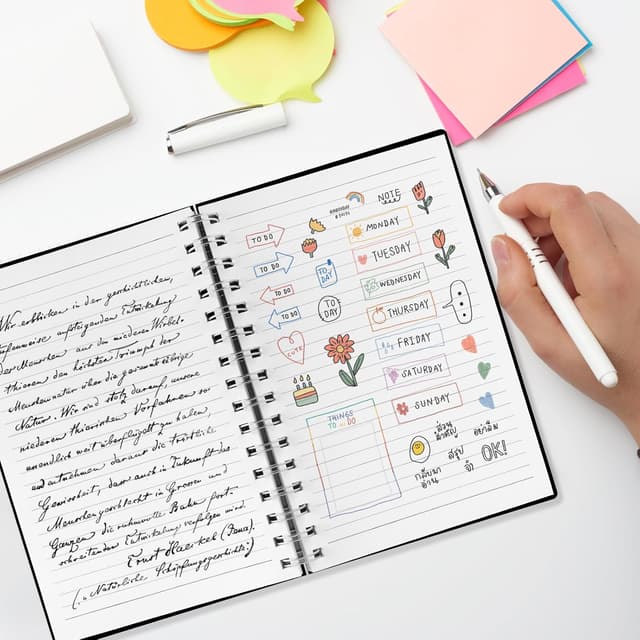 Wir erblicken in der geschichtlichen,
stufenweise aufsteigenden Entwickelung
des Menschen aus den niederen Wirbel-
thieren den höchsten Triumph der
Menschennatur über die gesammte übrige
Natur. Wir sind stolz darauf, unsere
niederen thierischen Vorfahren so
unendlich weit überflügelt zu haben
und entnehmen daraus die tröstliche
Gewissheit, dass auch in Zukunft das
Menschengeschlecht im Grossen und
Ganzen die ruhmvolle Bahn fort-
schreitender Entwickelung verfolgen wird.
Ernst Haeckel (Jena).
(in Natürliche Schöpfungsgeschichte.)
NOTE
TO DO
TO DO
TO DO
TO DO
TO
DAY
TO
DAY
CUTE
MONDAY
TUESDAY
WEDNESDAY
THURSDAY
FRIDAY
SATURDAY
SUNDAY
THINGS
TO DO
ส่วน
สำคัญ
อย่าลืม
สรุป
จำ
OK!
กลับมา
อ่าน